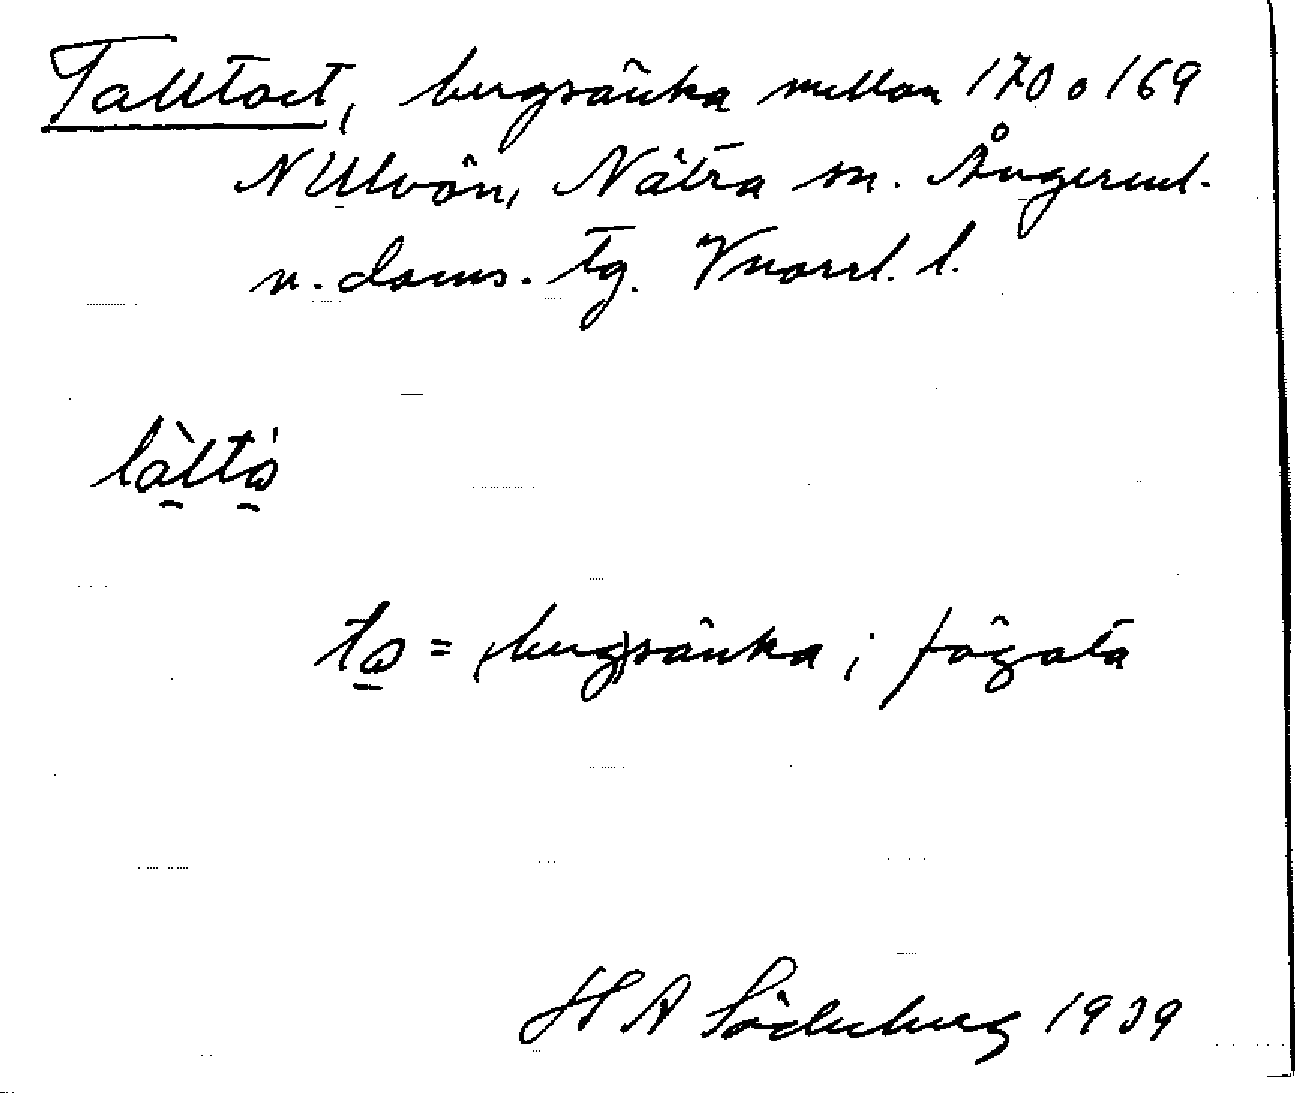 Talltået, bergsänka mellan 170 o 169
N Ulvön, Nätra sn. Ångerml.
n. doms. tg. Vnorrl. l.
tàltå
tå = (berg)sänka; fågata
H A Söderberg 1939